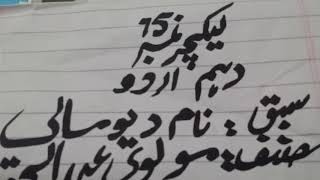 لیکچر نمبر 15
دہم اردو
سبق : نام دیو مالی
مصنف: مولوی عبدالحق